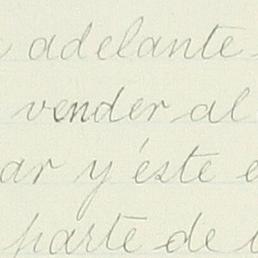 adelante
vender al
ar y éste
parte de